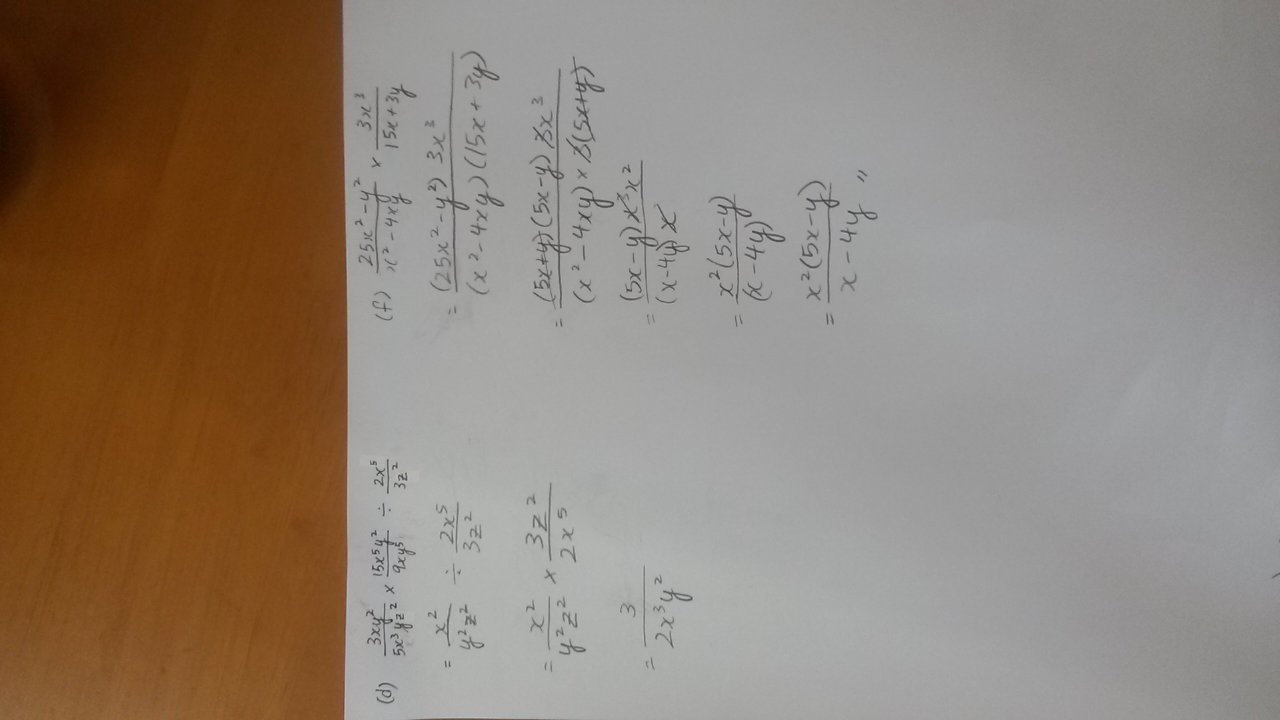 (d) 3xy²/5x³yz² × 15x⁵y²/9xy⁵ ÷ 2x⁵/3z²
= x²/y²z² ÷ 2x⁵/3z²
= x²/y²z² × 3z²/2x⁵
= 3/2x³y²
(f) 25x²-y²/x²-4xy × 3x³/15x+3y
= (25x²-y²) 3x³/(x²-4xy)(15x+3y)
= (5x+y)(5x-y) 3x³/(x²-4xy) × 3(5x+y)
= (5x-y) x³ x²/(x-4y) x
= x²(5x-y)/(x-4y)
= x²(5x-y)/x-4y "